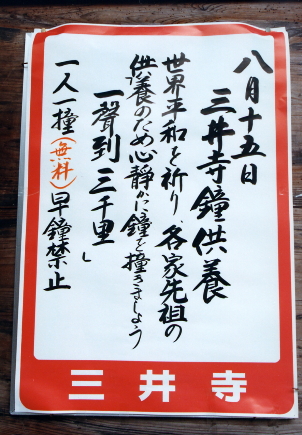 八月十五日
三井寺鐘供養
世界平和を祈り、各家先祖の
供養のため心静かに鐘を撞きましょう
一聲到三千里」
一人一撞(無料)早鐘禁止
三井寺